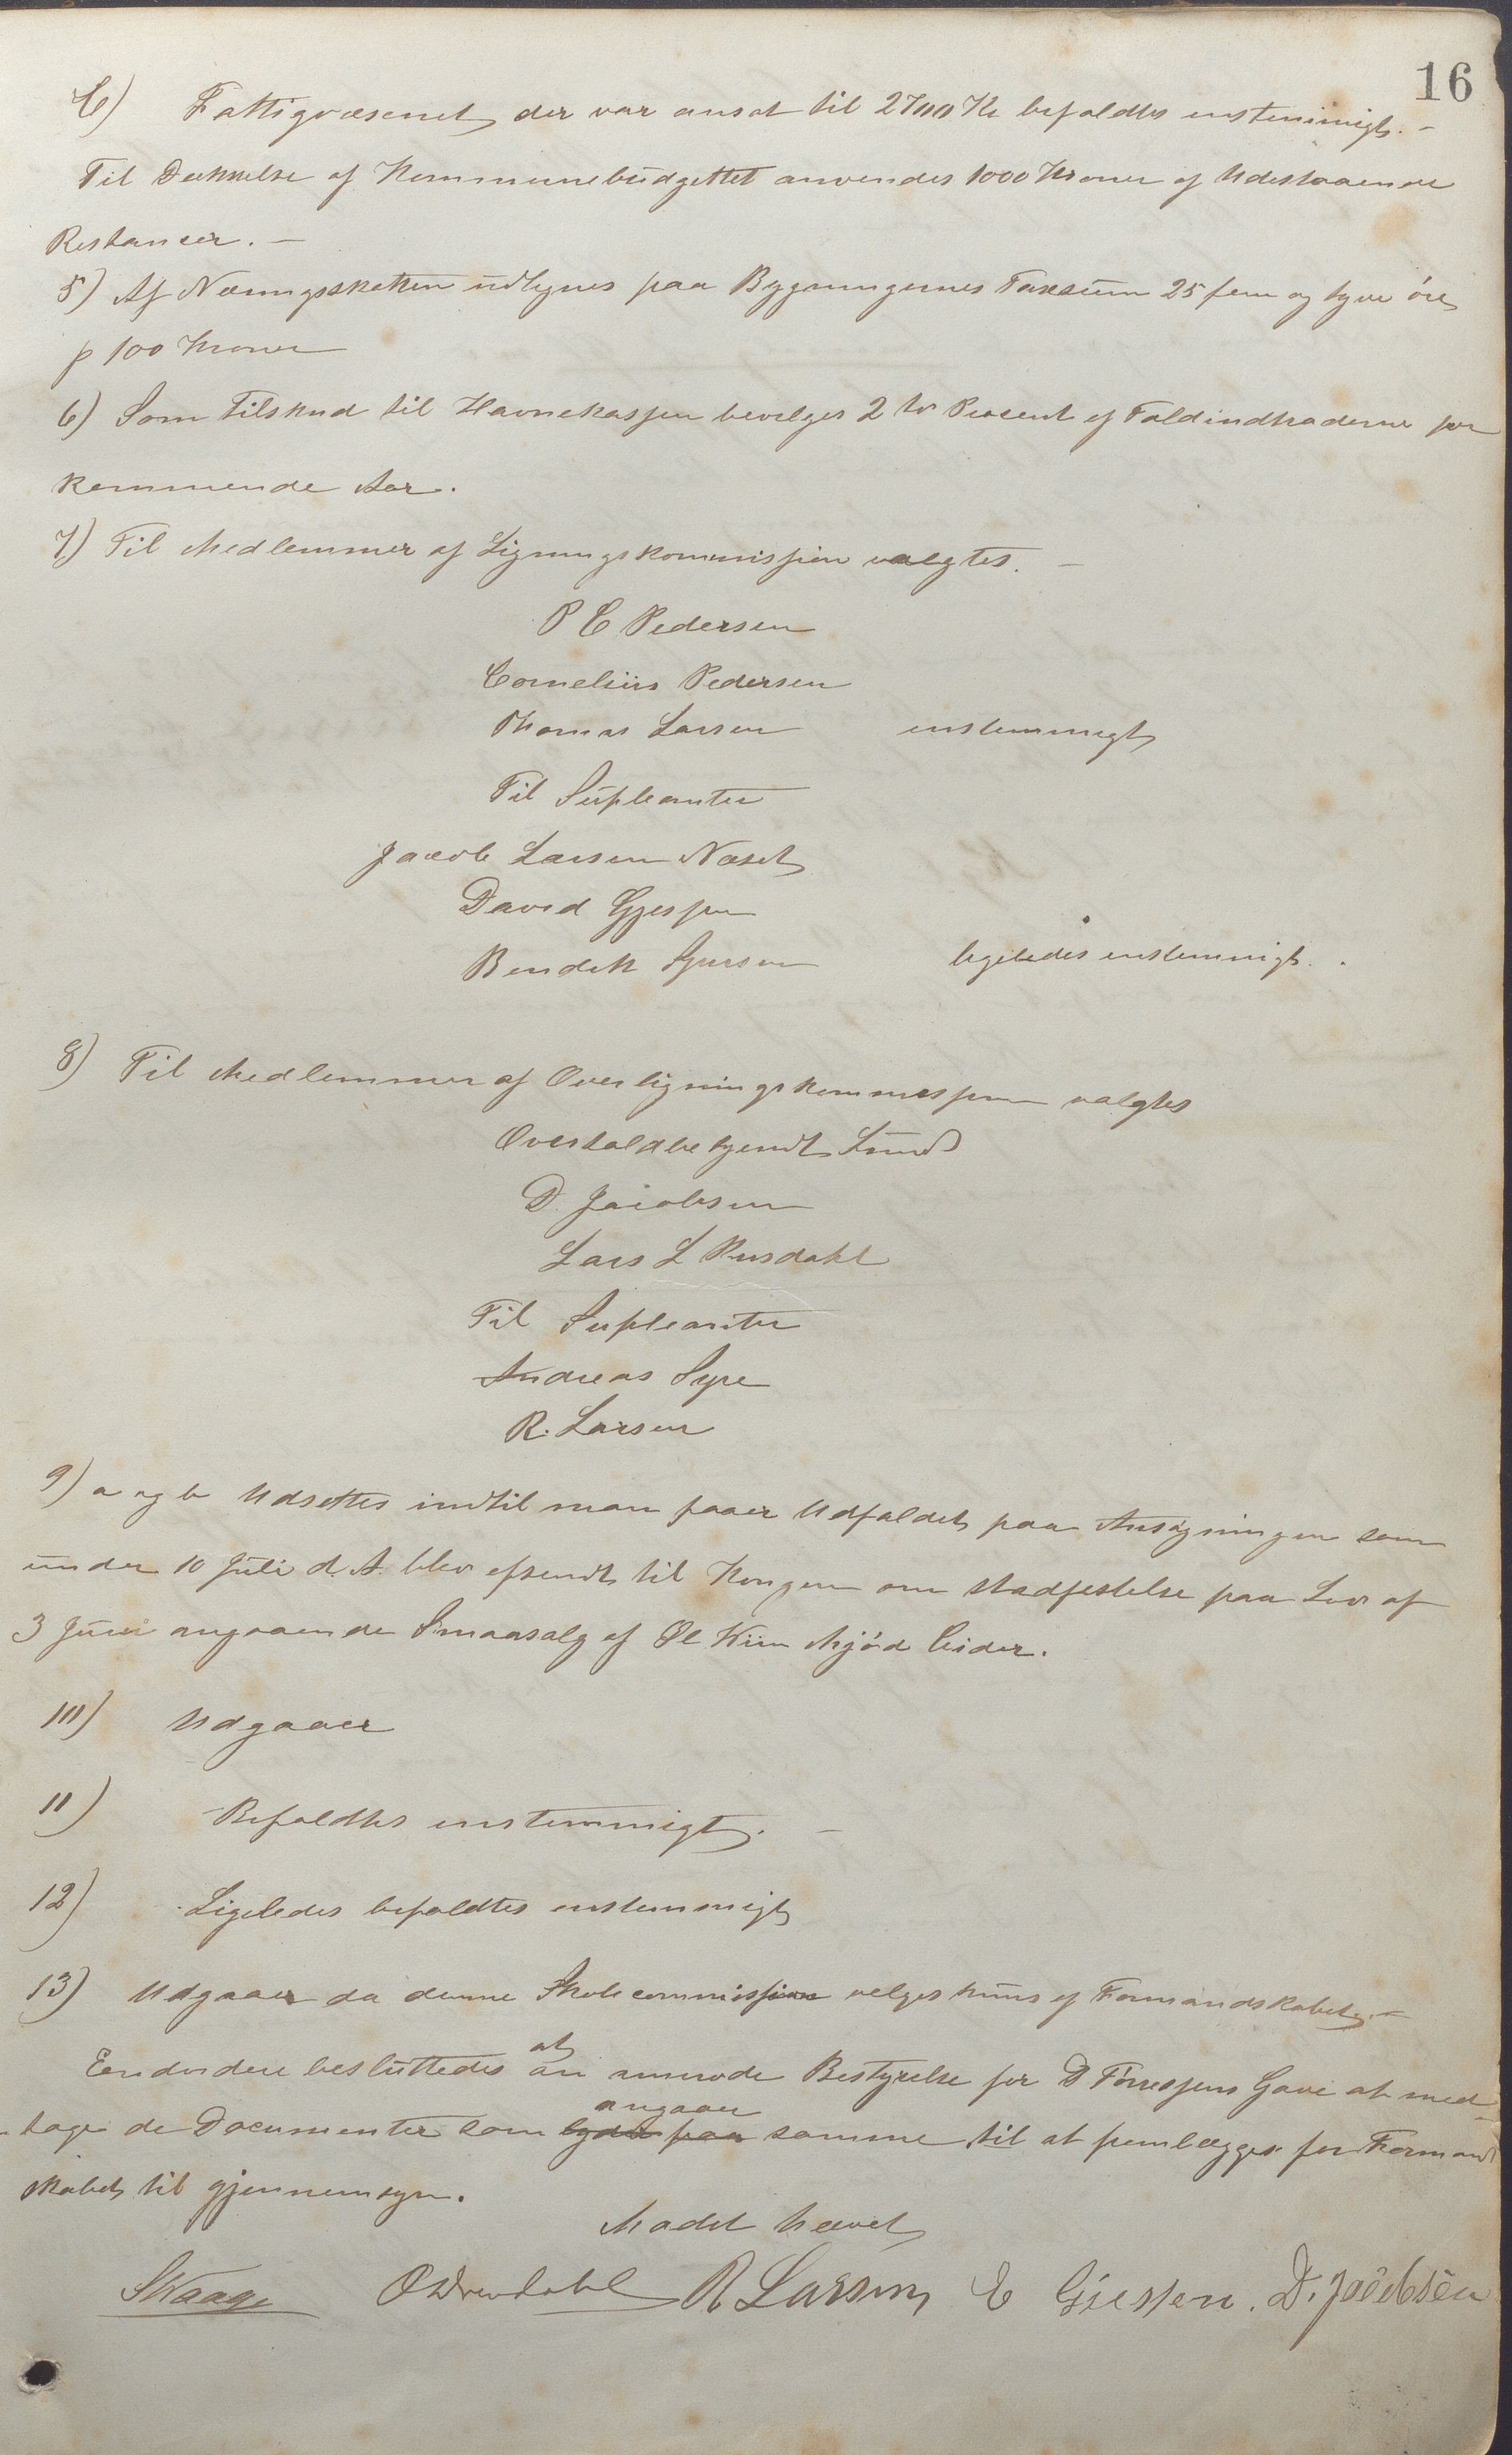 16
C) Fattigvæsenet der var ansat til 2700 Kr bifaldtes enstemmigt. –
Til Dækkelse af Kommunebudgettet anvendes 1000 Kroner af Udestaaende
Restancer. –
5) Af Næringsskatten udlignes paa Bygningernes Taxsum 25 fem og tyve öre
p 100 Kroner
6) Som Tilskud til Havnekassen bevilges 2 to Procent af Toldindtraderne for
kommende Aar.
7) Til Medlemmer af Ligningskommissjon valgtes. –
P C Pedersen
Cornelius Pedersen
Thomas Larsen enstemmigt
Til Supleanter
Jacob Larsen Næset
David Gjessen
Bendik Syversen ligeledes enstemmigt.
8) Til Medlemmer af Overligningskommissjonen valgtes
Overtoldbetjent Lund
D. Jacobsen
Lars L Rusdahl
Til Supleanter
Andreas Syre
R. Larsen
9) a og b Udsettes indtil man faaer Udfaldet paa Ansøgningen som
under 10 Juli d. A. blev afsendt til Kongen om stadfestelse paa Lov af
3 Juni angaaende Smaasalg af Øl Viin Mjød Cider.
10) Udgaaer
11) Bifaldtes enstemmigt. –
12) Ligeledes bifaldtes enstemmigt
13) Udgaaer da denne Skolecommissjon velges kuns af Formandskabet. –
Endvidere besluttedes at an mode Bestyrelse for D Tørresens Gave at med-
tage de Documenter som lyder paa angaaer samme til at fremlægges for Formand
skabet til gjennemsyn.
Mødet hævet
S Waage O Drevdahl R Larsen E Giessen. D. Jacobsen